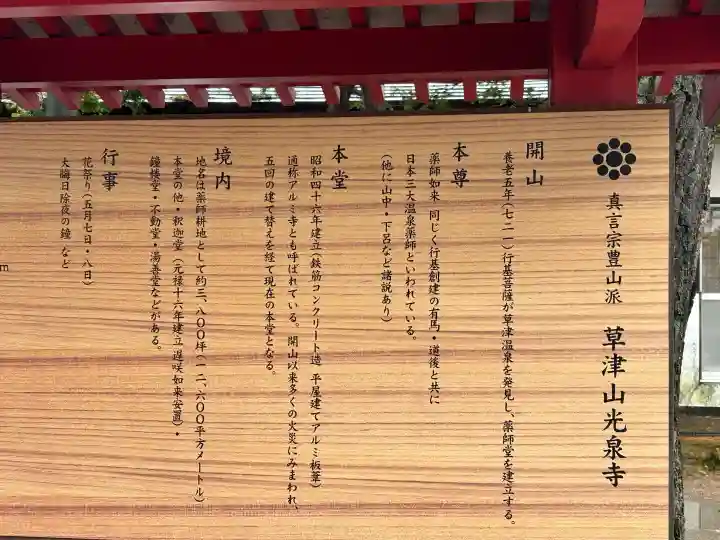 真言宗豊山派 草津山光泉寺
開山
養老五年(七二一)行基菩薩が草津温泉を発見し、薬師堂を建立する。
本尊
薬師如来 同じく行基創建の有馬・道後と共に
日本三大温泉薬師といわれている。
(他に山中・下呂など諸説あり)
本堂
昭和四十六年建立(鉄筋コンクリート造 平屋建てアルミ板葺)
通称アルミ寺とも呼ばれている。開山以来多くの火災にみまわれ、
五回の建て替えを経て現在の本堂となる。
境内
地名は薬師耕地として約三、八〇〇坪(一二、六〇〇平方メートル)
本堂の他・釈迦堂(元禄十六年建立 遅咲如来安置)・
鐘楼堂・不動堂・湯善堂などがある。
行事
花祭り(五月七日・八日)
大晦日除夜の鐘 など
m